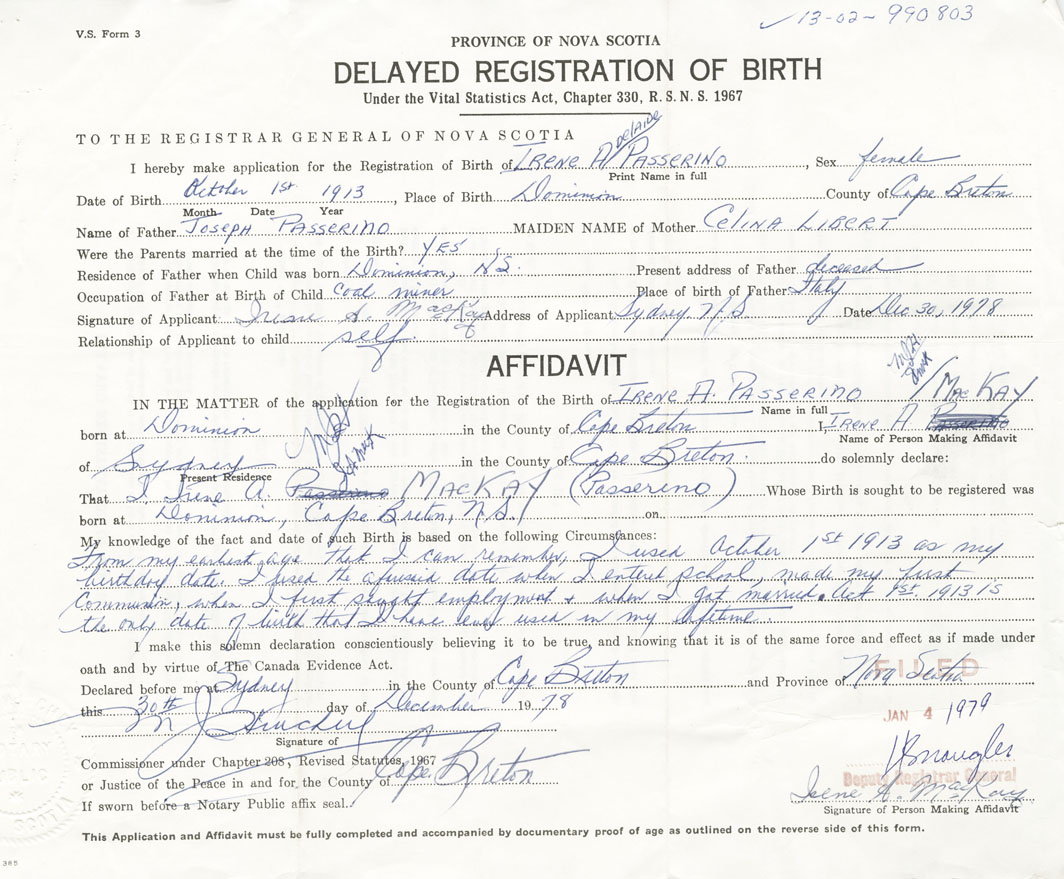 ✓ 13-02-990803
V.S. Form 3
PROVINCE OF NOVA SCOTIA
DELAYED REGISTRATION OF BIRTH
Under the Vital Statistics Act, Chapter 330, R. S. N. S. 1967
TO THE REGISTRAR GENERAL OF NOVA SCOTIA
DELAINE
I hereby make application for the Registration of Birth of IRENE A PASSERINO, Sex female
Print Name in full
Date of Birth October 1st 1913, Place of Birth Dominion County of Cape Breton
Month Date Year
Name of Father JOSEPH PASSERINO MAIDEN NAME of Mother CELINA LIBERT
Were the Parents married at the time of the Birth? YES
Residence of Father when Child was born Dominion, N.S. Present address of Father deceased
Occupation of Father at Birth of Child Coal miner Place of birth of Father Italy
Signature of Applicant Irene A. MacKay Address of Applicant Sydney N/S Date Dec 30, 1978
Relationship of Applicant to child self
AFFIDAVIT
IN THE MATTER of the application for the Registration of the Birth of IRENE A. PASSERINO / MAC KAY
Name in full
born at Dominion in the County of Cape Breton I, IRENE A PASSERINO
Name of Person Making Affidavit
of Sydney in the County of Cape Breton. do solemnly declare:
Present Residence
That I, Irene A. Passerino MACKAY (Passerino) Whose Birth is sought to be registered was
born at Dominion, Cape Breton, N.S. on
My knowledge of the fact and date of such Birth is based on the following Circumstances:
From my earliest age that I can remember, I used October 1st 1913 as my
birthday date. I used the afusied date when I entered school, made my first
Communion, when I first sought employment + when I got married. Oct 1st, 1913 is
the only date of birth that I have ever used in my lifetime.
I make this solemn declaration conscientiously believing it to be true, and knowing that it is of the same force and effect as if made under
oath and by virtue of The Canada Evidence Act.
Declared before me at Sydney in the County of Cape Breton and Province of Nova Scotia
FILED
this 30th day of December 1978
JAN 4 1979
Signature of
Commissioner under Chapter 208, Revised Statutes, 1967
or Justice of the Peace in and for the County of Cape Breton
Deputy Registrar General
If sworn before a Notary Public affix seal.
Irene A. MacKay
Signature of Person Making Affidavit
This Application and Affidavit must be fully completed and accompanied by documentary proof of age as outlined on the reverse side of this form.
385